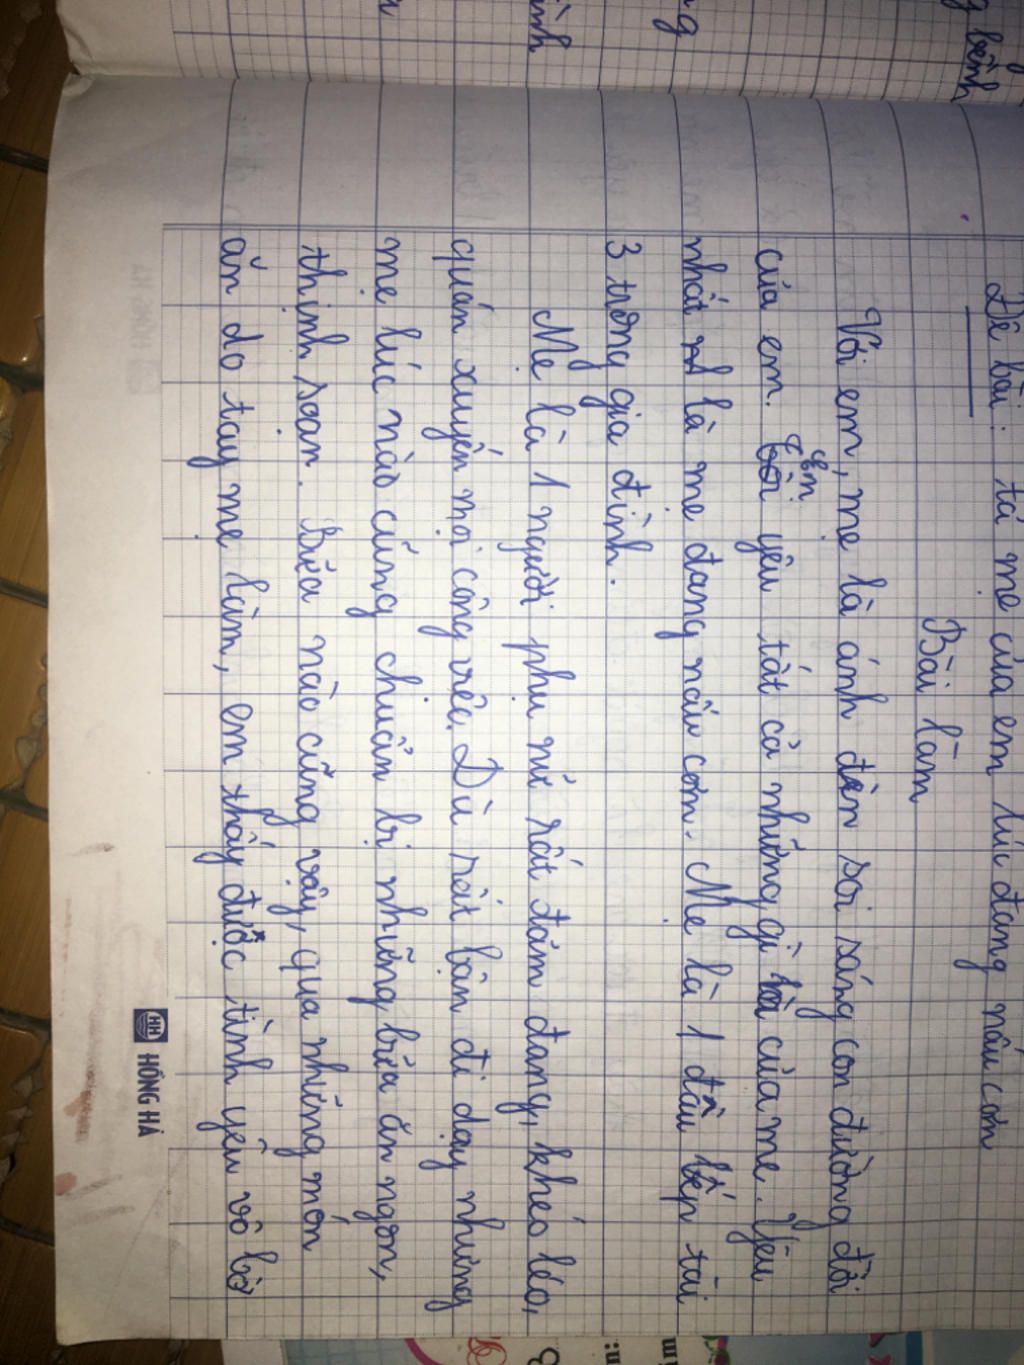 Đề bài: tả mẹ của em lúc đang nấu cơm
Bài làm
Với em, mẹ là ánh đèn soi sáng con đường đời
của em. Em yêu tất cả những gì của mẹ. Yêu
nhất là mẹ đang nấu cơm. Mẹ là 1 đầu bếp tài
3 trong gia đình.
Mẹ là 1 người phụ nữ rất đảm đang, khéo léo,
quán xuyến mọi công việc. Dù rất bận đi dạy nhưng
mẹ lúc nào cũng chuẩn bị những bữa ăn ngon,
thịnh soạn. Bữa nào cũng vậy, qua những món
ăn do tay mẹ làm, em thấy được tình yêu vô bờ
HH HỒNG HÀ